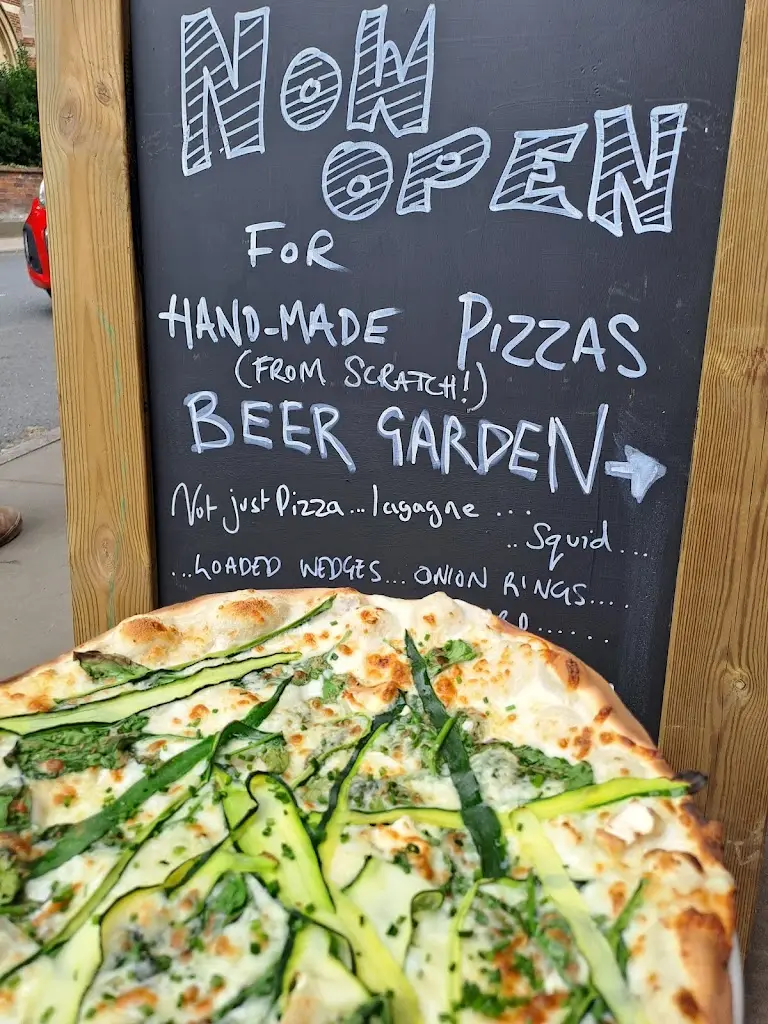 NOW
OPEN
FOR
HAND-MADE PIZZAS
(FROM SCRATCH!)
BEER GARDEN→
Not just Pizza... lagagne ...
.. Squid....
...LOADED WEDGES... ONION RINGS....